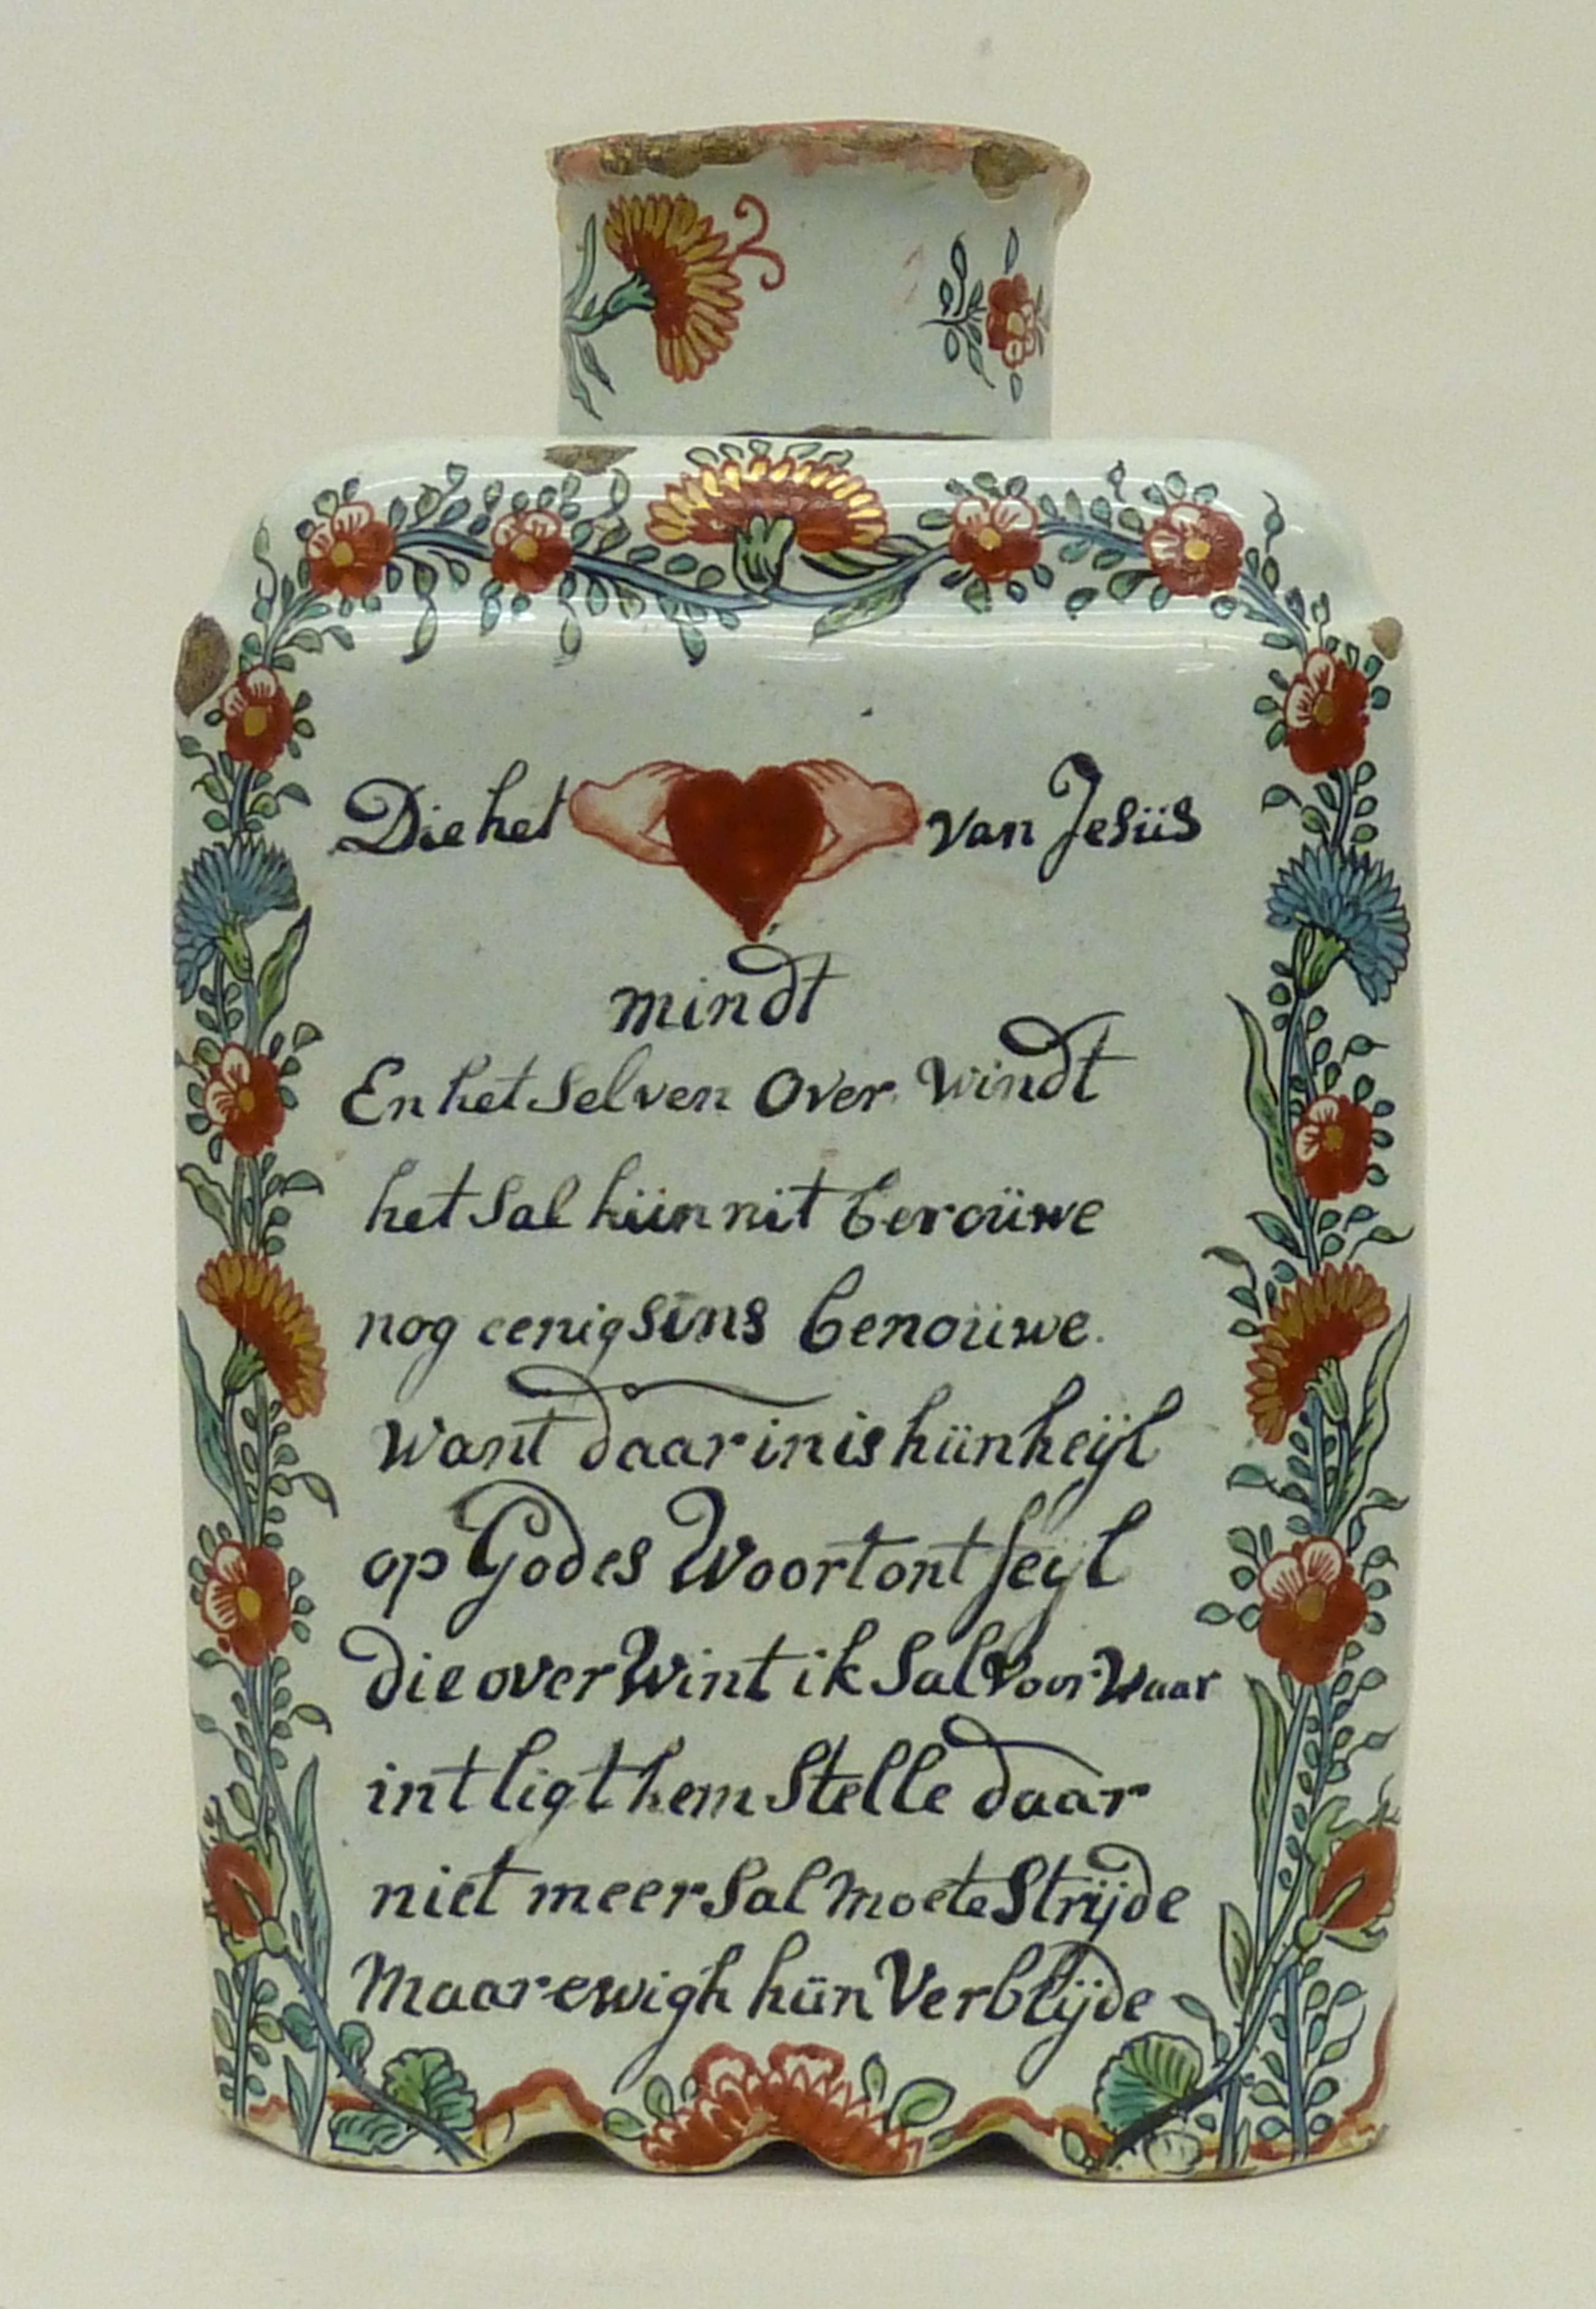 Die het van Jesüs
mindt
En het selven over windt
het sal hün nit beroüwe
nog eenigsins benoüwe.
want daar in is hün heÿl
op Godes Woort ont seÿl
die over Wint ik sal voor Waar
int ligt hem stelle daar
niet meer sal moete strÿde
Maar ewigh hün Verblÿde